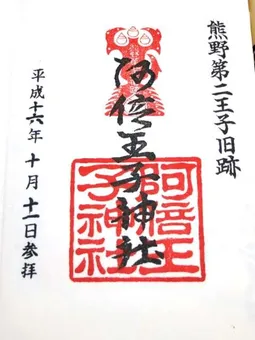 熊野第二王子旧跡
阿倍王子神社
阿倍王
子神社
平成十六年十月十一日参拝